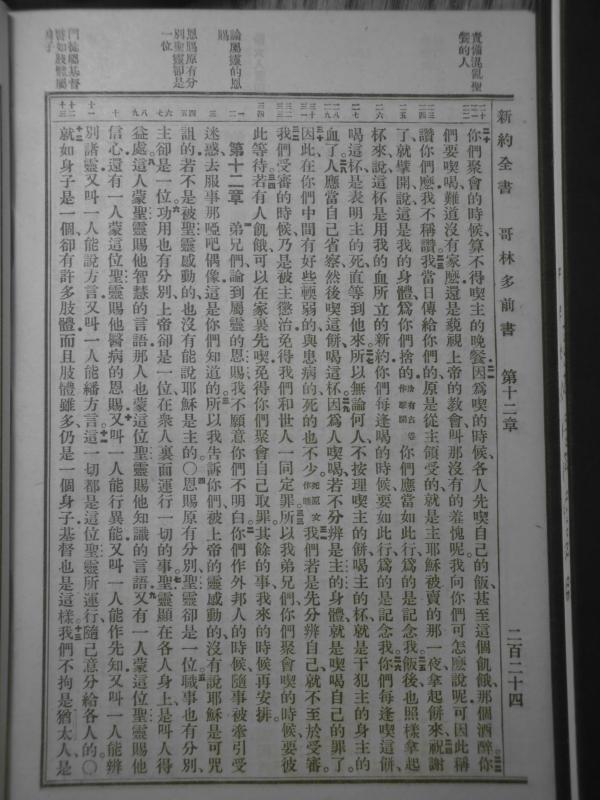 新約全書 哥林多前書 第十二章 二百二十四
責備混亂聖餐的人
論屬靈的恩賜
恩賜原有分別聖靈卻是一位
門徒屬基督譬如肢體屬身子
你們聚會的時候算不得喫主的晚餐因爲喫的時候各人先喫自己的飯甚至這個飢餓那個酒醉你
們要喫喝難道沒有家麽還是藐視上帝的教會叫那沒有的羞愧呢我向你們可怎麽說呢可因此稱
讚你們麽我不稱讚我當日傳給你們的原是從主領受的就是主耶穌被賣的那一夜拿起餅來祝謝
了就擘開說這是我的身體爲你們捨的你們應當如此行爲的是記念我飯後也照樣拿起
杯來說這杯是用我的血所立的新約你們每逢喝的時候要如此行爲的是記念我你們每逢喫這餅
喝這杯是表明主的死直等到他來所以無論何人不按理喫主的餅喝主的杯就是干犯主的身主的
血了人應當自己省察然後喫這餅喝這杯因爲人喫喝若不分辨是主的身體就是喫喝自己的罪了
因此在你們中間有好些輭弱的與患病的死的也不少我們若是先分辨自己就不至於受審
我們受審的時候乃是被主懲治免得我們和世人一同定罪所以我弟兄們你們聚會喫的時候要彼
此等待若有人飢餓可以在家裏先喫免得你們聚會自己取罪其餘的事我來的時候再安排
第十二章 弟兄們論到屬靈的恩賜我不願意你們不明白你們作外邦人的時候隨事被牽引受
迷惑去服事那啞吧偶像這是你們知道的所以我告訴你們被上帝的靈感動的沒有說耶穌是可咒
詛的若不是被聖靈感動的也沒有能說耶穌是主的〇恩賜原有分別聖靈卻是一位職事也有分別
主卻是一位功用也有分別上帝卻是一位在衆人裏面運行一切的事聖靈顯在各人身上是叫人得
益處這人蒙聖靈賜他智慧的言語那人也蒙這位聖靈賜他知識的言語又有一人蒙這位聖靈賜他
信心還有一人蒙這位聖靈賜他醫病的恩賜又叫一人能行異能又叫一人能作先知又叫一人能辨
別諸靈又叫一人能說方言又叫一人能繙方言這一切都是這位聖靈所運行隨己意分給各人的〇
就如身子是一個卻有許多肢體而且肢體雖多仍是一個身子基督也是這樣我們不拘是猶太人是